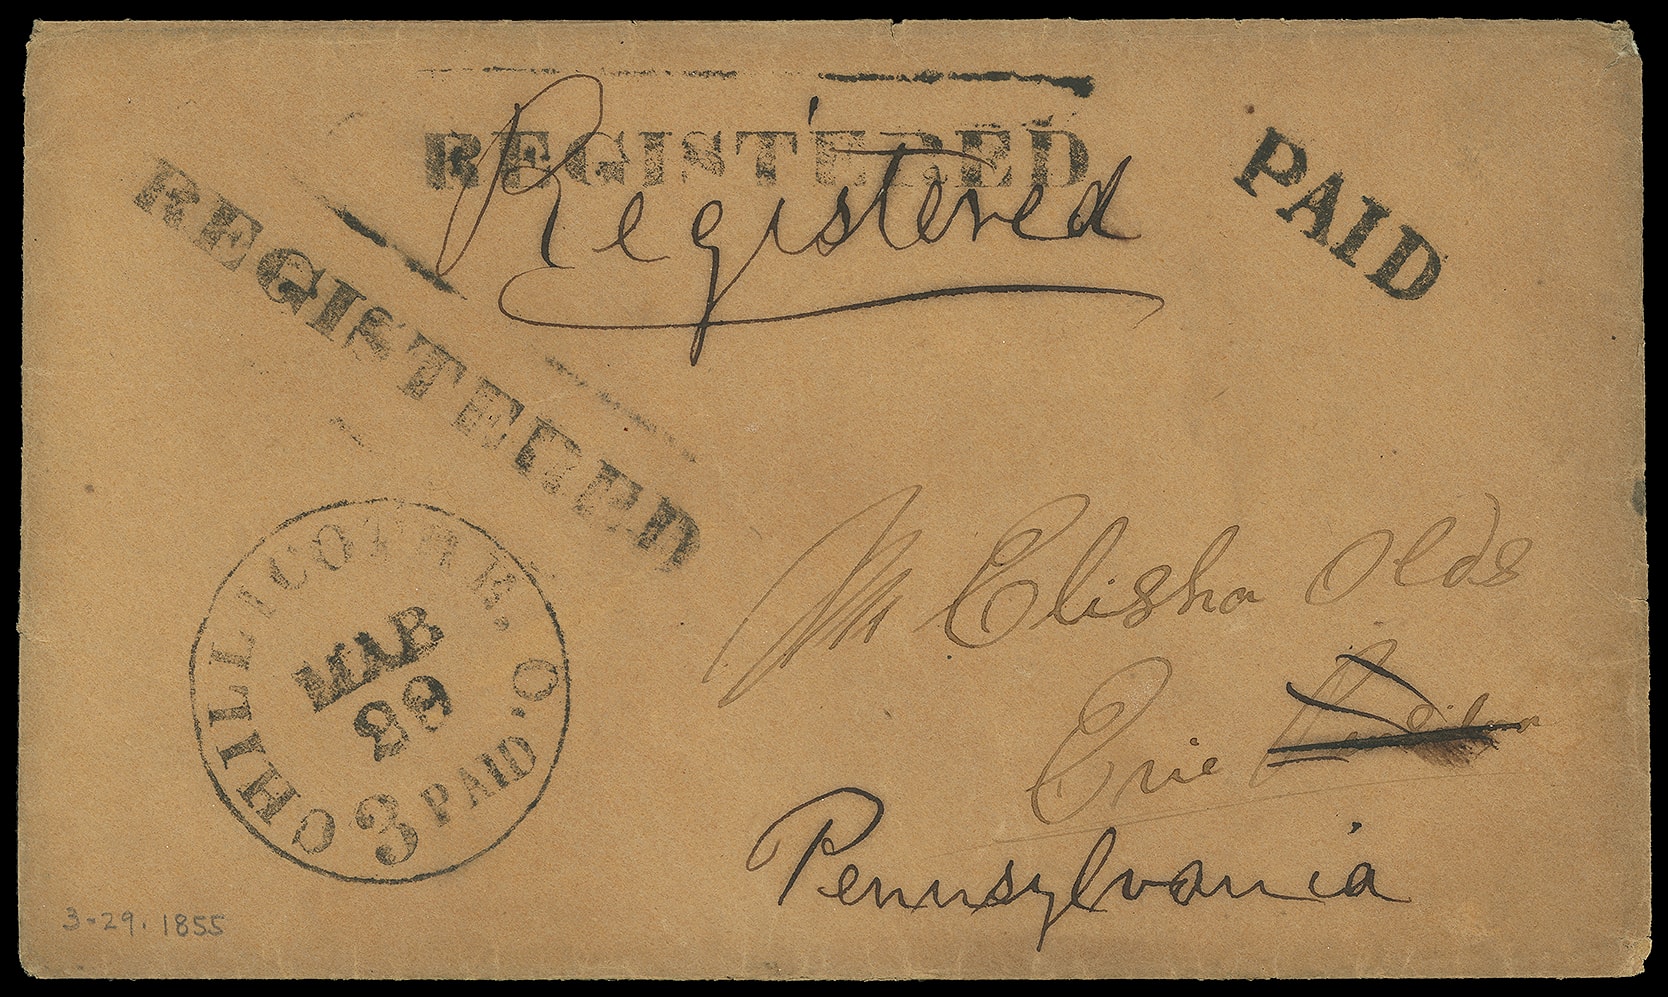 REGISTERED
Registered
PAID
REGISTERED
CHILLICOTHE, O.
MAR
29
3 PAID
Mr Elisha Olds
Erie
Pennsylvania
3-29.1855